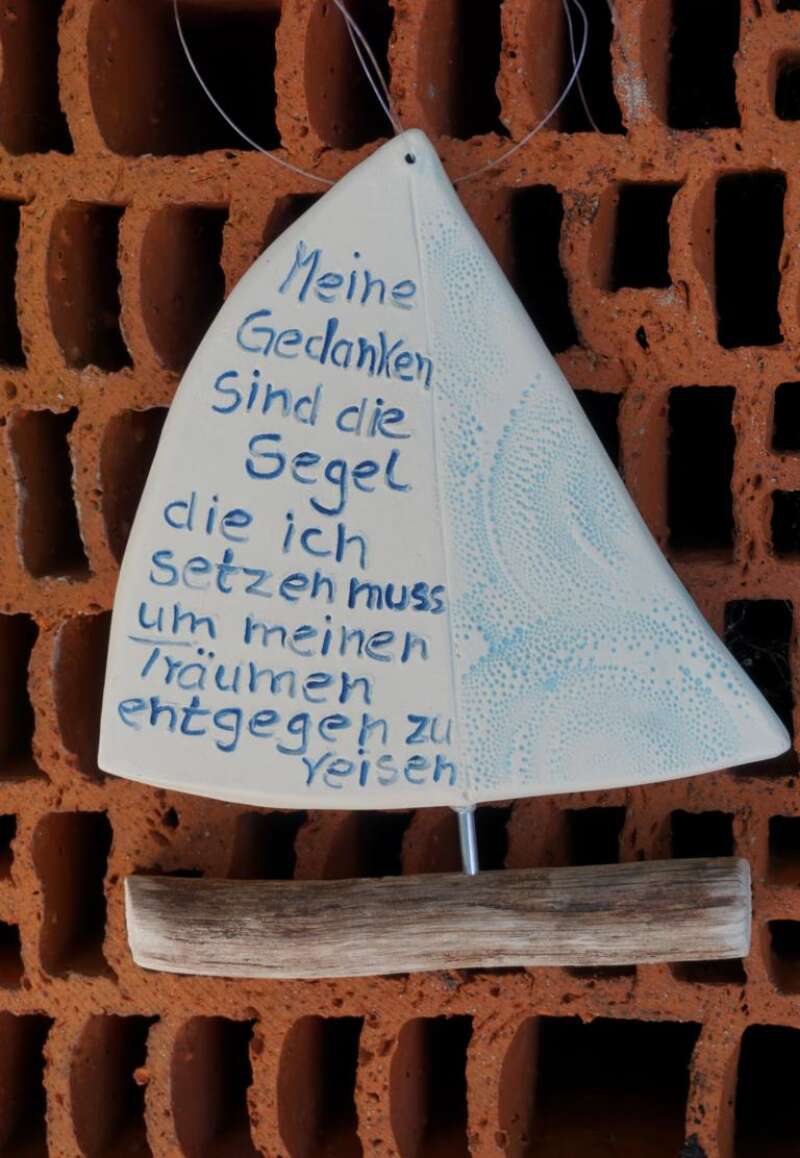 Meine
Gedanken
sind die
Segel
die ich
setzen muss
um meinen
Träumen
entgegen zu
reisen